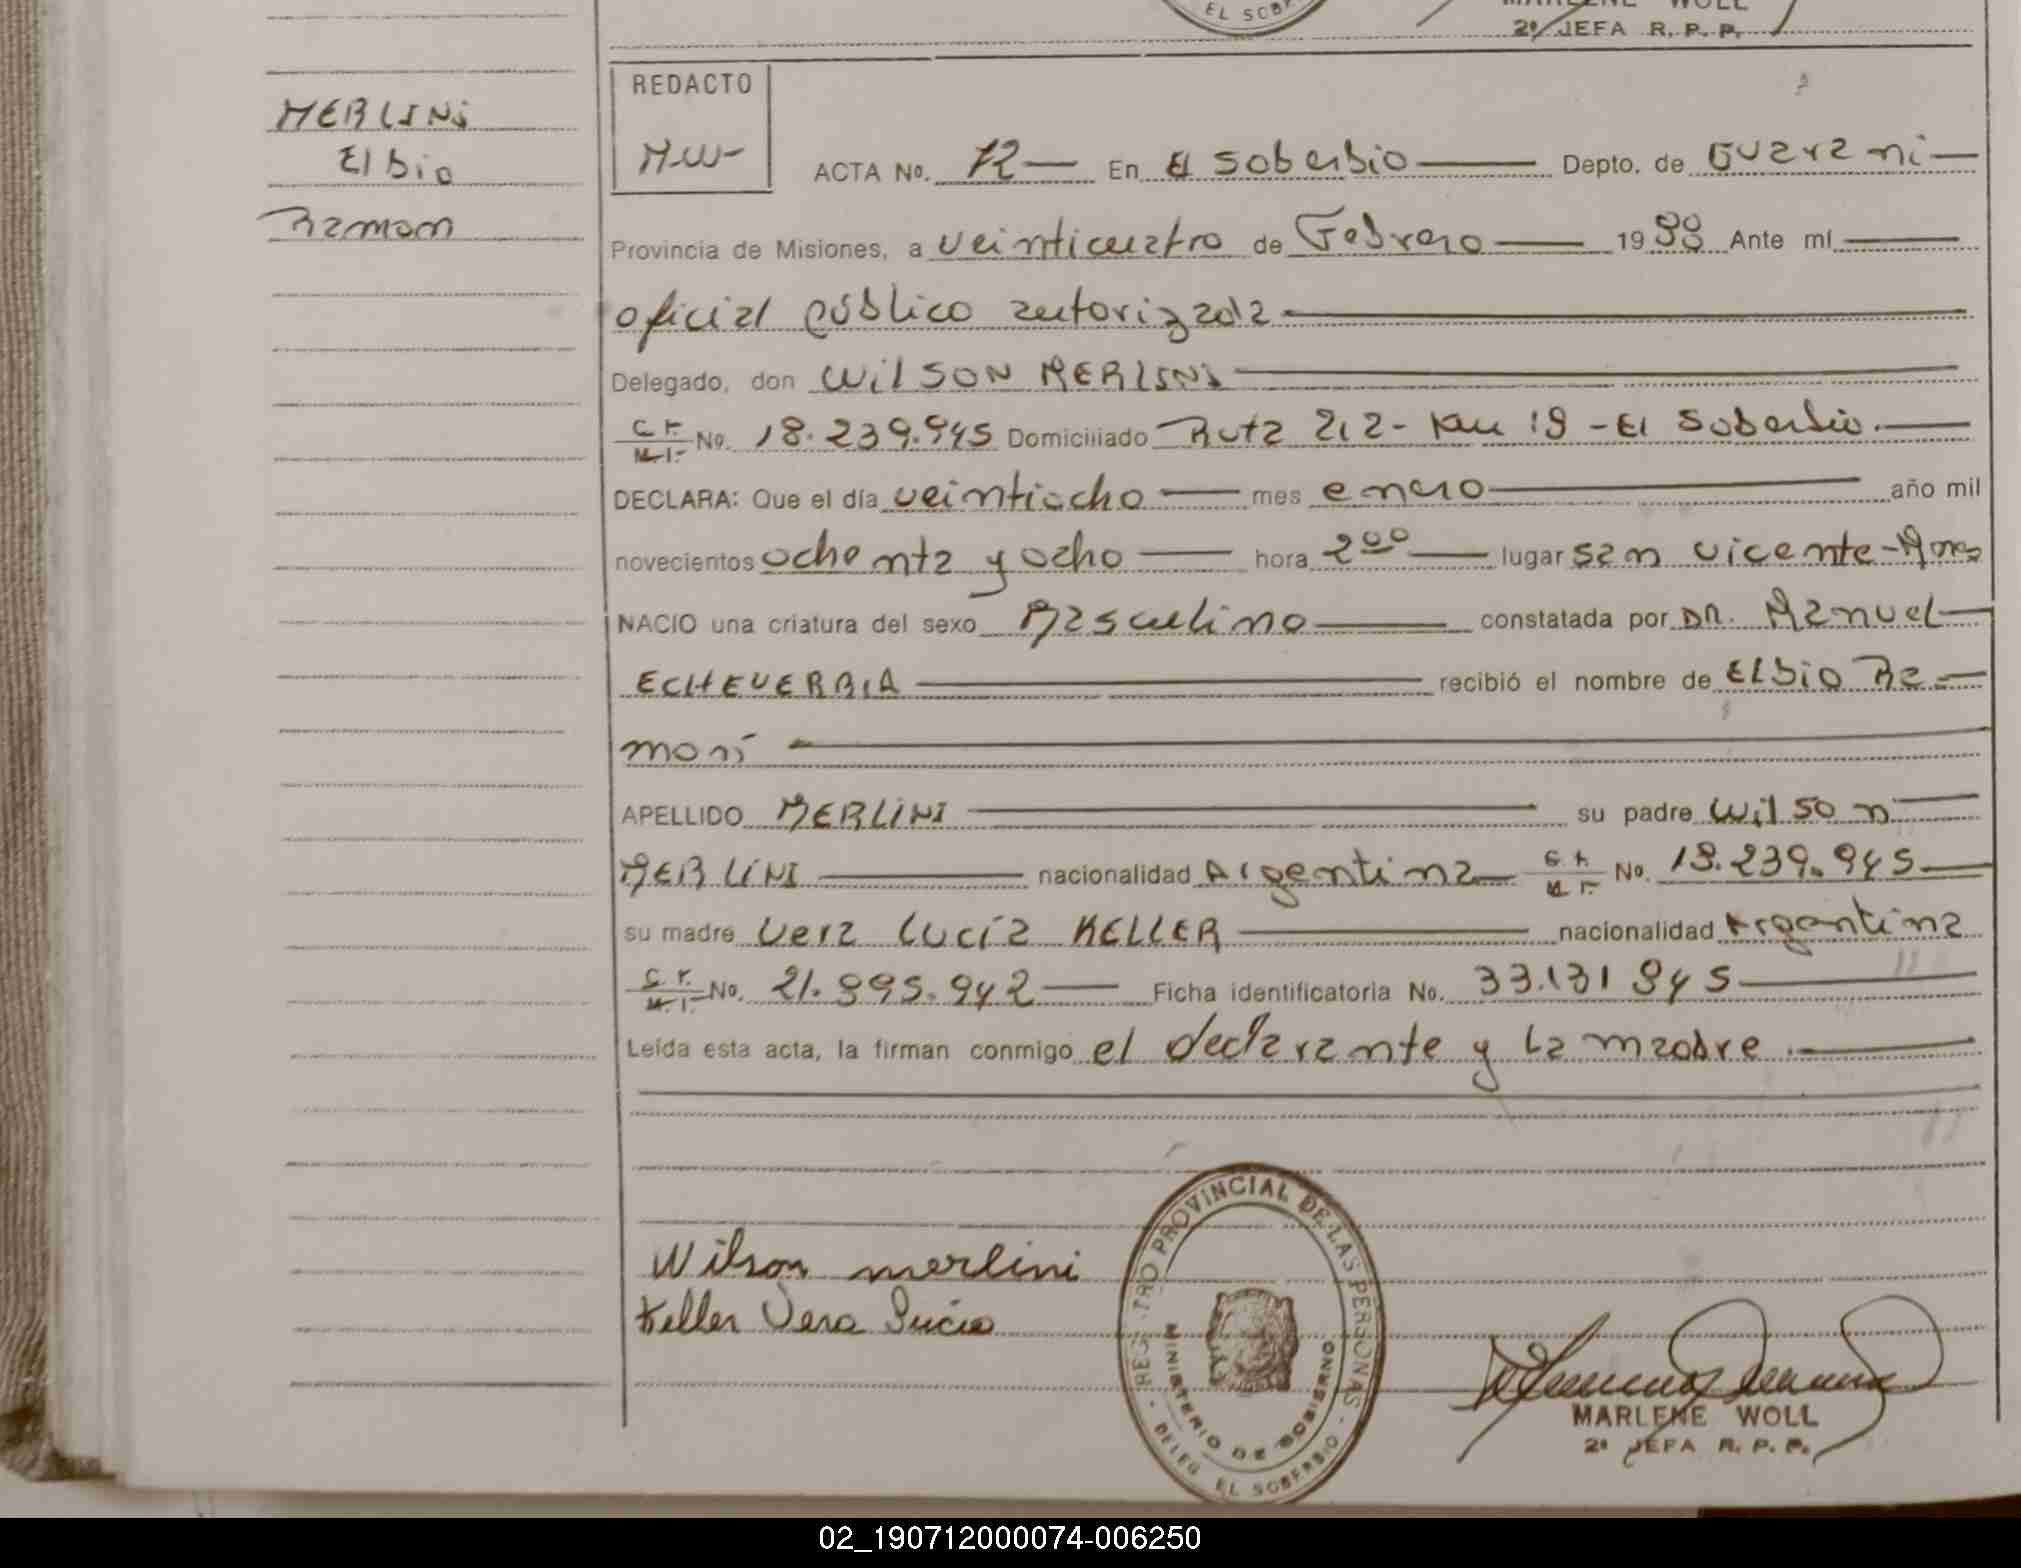 EL SOB
MARLENE WOLL
2º JEFA R. P. P.
MERLINI
Elbio
Ramon
REDACTO
M-W-
ACTA No. 72 En El Soberbio Depto. de Guarani
Provincia de Misiones, a veinticuatro de Febrero 1988 Ante mi
oficial público autorizada
Delegado, don WilSON MERLINI
No. 18.239.945 Domiciliado Ruta 212 - Km 18 - El Soberbio.
DECLARA: Que el día veintiocho mes enero año mil
novecientos ochenta y ocho hora 2 00 lugar San Vicente - Mnes
NACIO una criatura del sexo Masculino constatada por DR. Manuel
ECHEVERRIA recibió el nombre de Elbio Ra-
mon
APELLIDO MERLINI su padre Wilson
MERLINI nacionalidad Argentina No. 18.239.945
su madre Vera Lucía KELLER nacionalidad Argentina
No. 21.995.942 Ficha identificatoria No. 33.131 945
Leída esta acta, la firman conmigo el declarante y la madre.
Wilson merlini
Keller Vera Lucia
REGISTRO PROVINCIAL DE LAS PERSONAS - DELEG EL SOBERBIO -
MINISTERIO DE GOBIERNO
MARLENE WOLL
2º JEFA R. P. P.
02_190712000074-006250